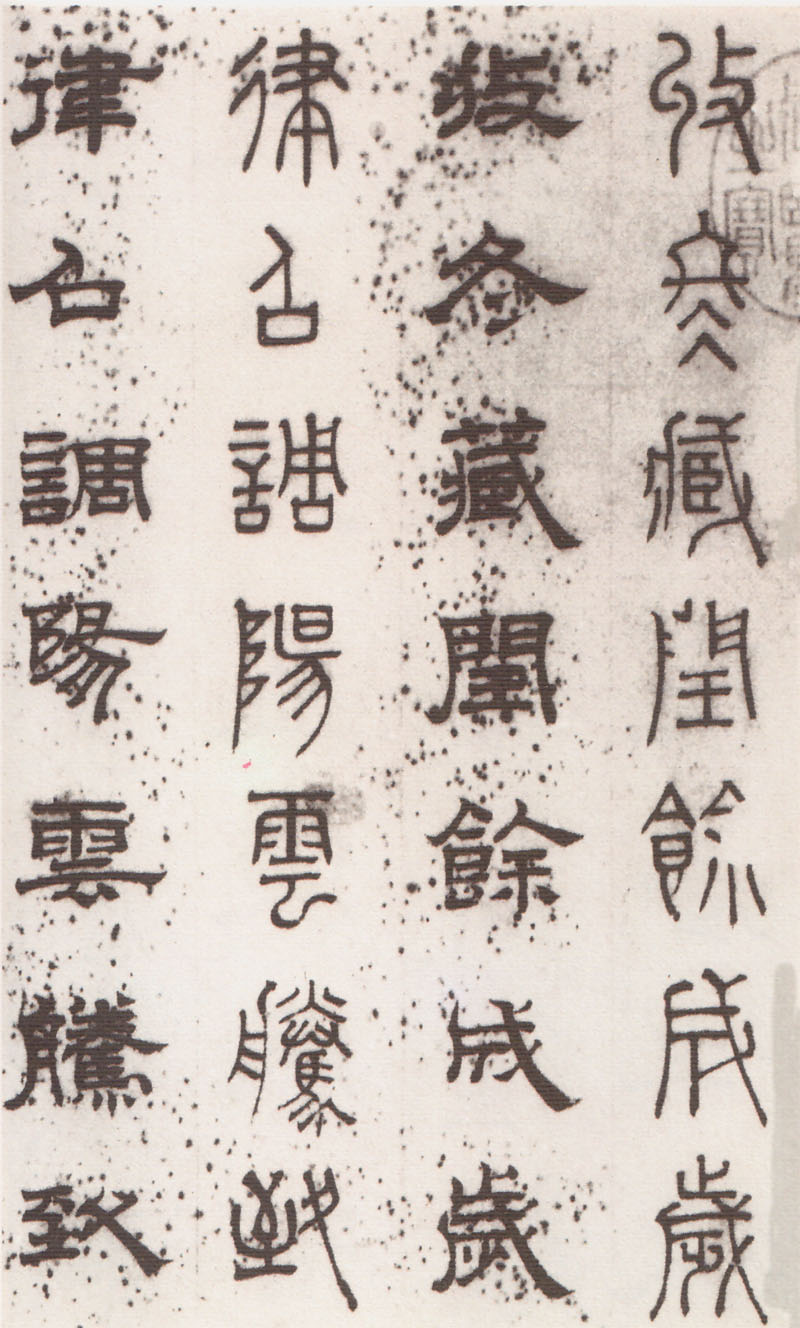 收冬藏閏餘成歲
收冬藏閏餘成歲
律召調陽雲騰致
律召調陽雲騰致
寶